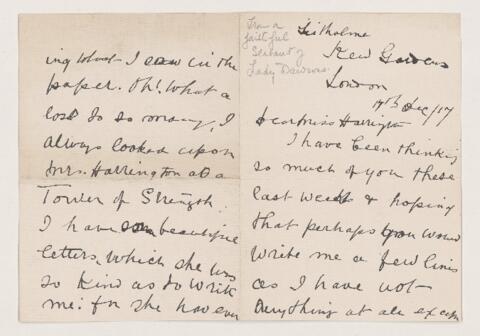 From a
faithful
Servant of
Lady
Kew Gardens
London
17th Dec/17
Dear Miss Harrington
I have been thinking
so much of you these
last week & hoping
that perhaps you would
write me a few lines
as I have not
anything at all except
ing what I saw in the
paper. Oh! What a
loss to so many, I
always looked upon
Mrs. Harrington as a
Tower of Strength.
I have beautiful
letters, which she was
so kind as to write
me: for she has ever